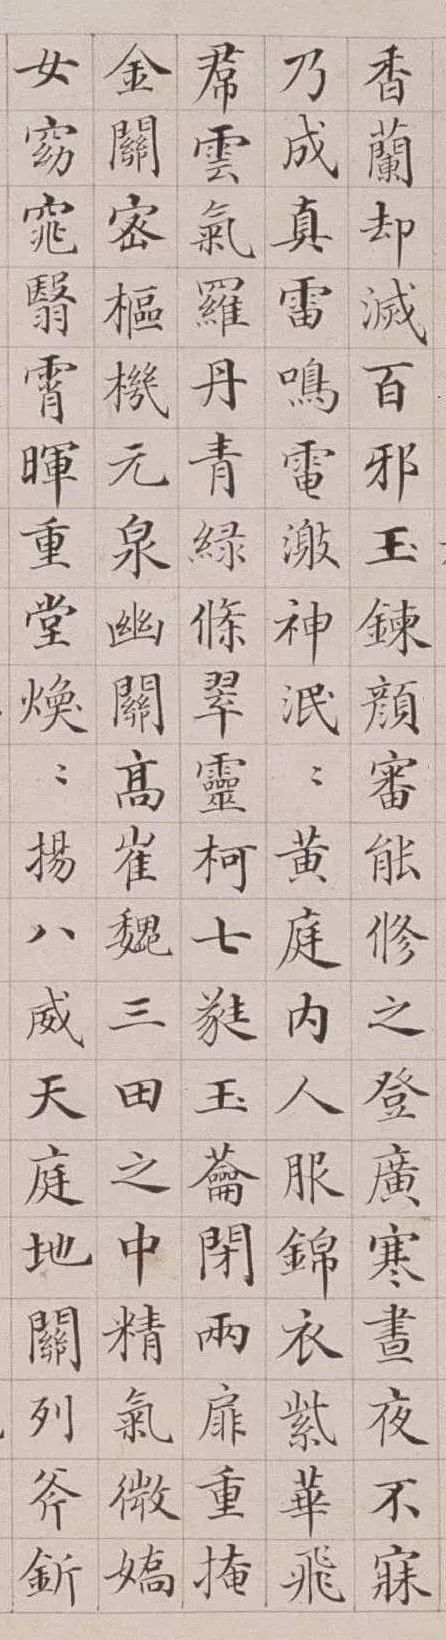 香蘭却滅百邪玉鍊顔審能修之登廣寒晝夜不寐
乃成真雷鳴電激神泯〻黄庭内人服錦衣紫華飛
帬雲氣羅丹青緑條翠靈柯七蕤玉蘥閉兩扉重掩
金關宻樞機元泉幽關髙崔魏三田之中精氣微嬌
女窈窕翳霄暉重堂煥〻揚八威天庭地關列斧釿